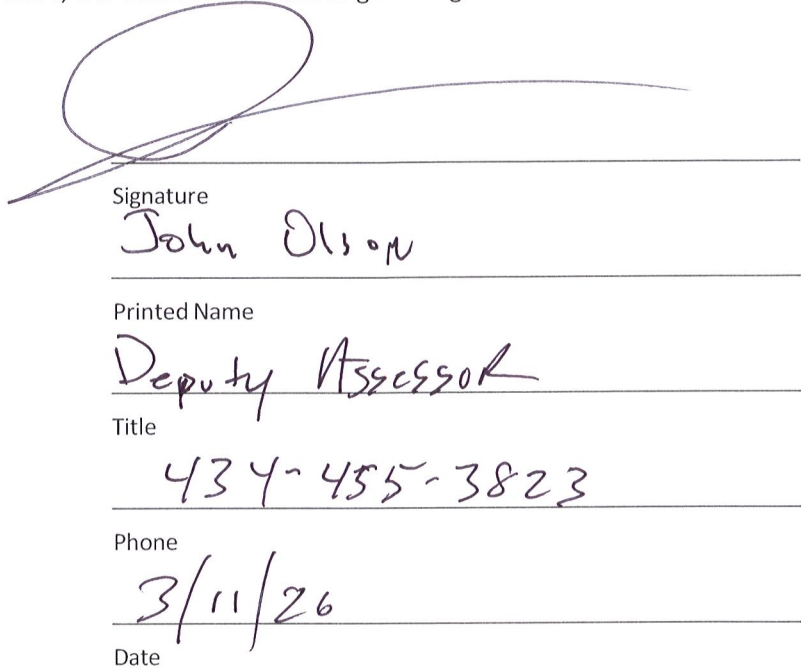 Signature
John Olson
Printed Name
Deputy Assessor
Title
434-455-3823
Phone
3/11/26
Date